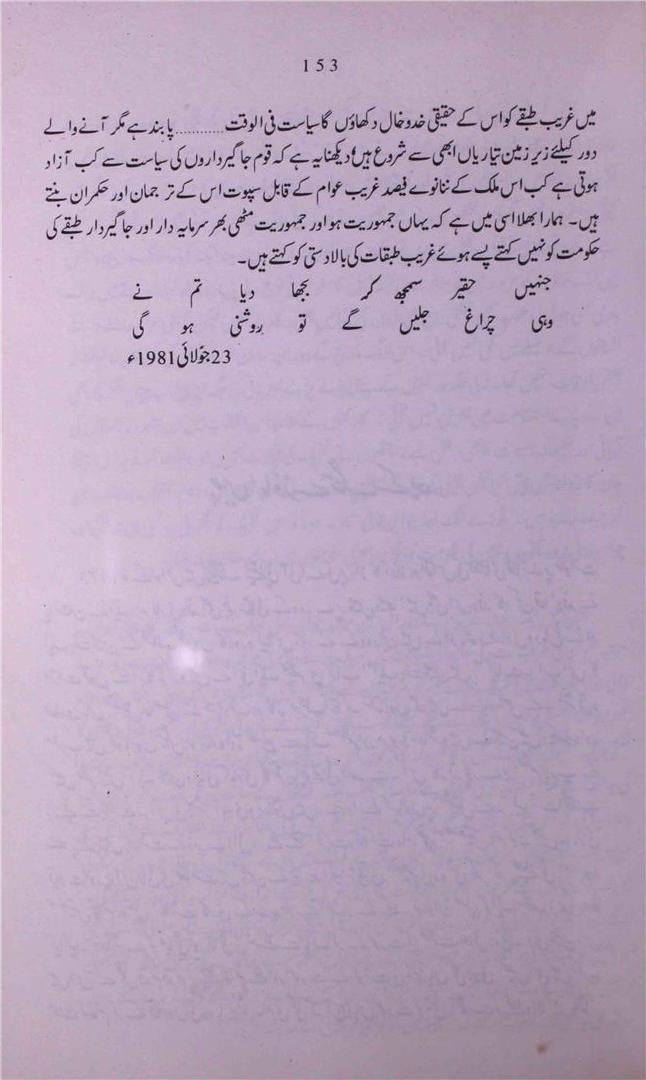 153
میں غریب طبقے کو اس کے حقیقی خدوخال دکھاؤں گا سیاست فی الوقت............پابند ہے مگر آنے والے
دور کیلئے زیر زمین تیاریاں ابھی سے شروع ہیں، دیکھنا یہ ہے کہ قوم جاگیرداروں کی سیاست سے کب آزاد
ہوتی ہے کب اس ملک کے ننانوے فیصد غریب عوام کے قابل سپوت اس کے ترجمان اور حکمران بنتے
ہیں۔ ہمارا بھلا اسی میں ہے کہ یہاں جمہوریت ہو اور جمہوریت مٹھی بھر سرمایہ دار اور جاگیردار طبقے کی
حکومت کو نہیں کہتے پسے ہوئے غریب طبقات کی بالادستی کو کہتے ہیں۔
جنہیں حقیر سمجھ کر بجھا دیا تم نے
وہی چراغ جلیں گے تو روشنی ہو گی
23 جولائی 1981ء